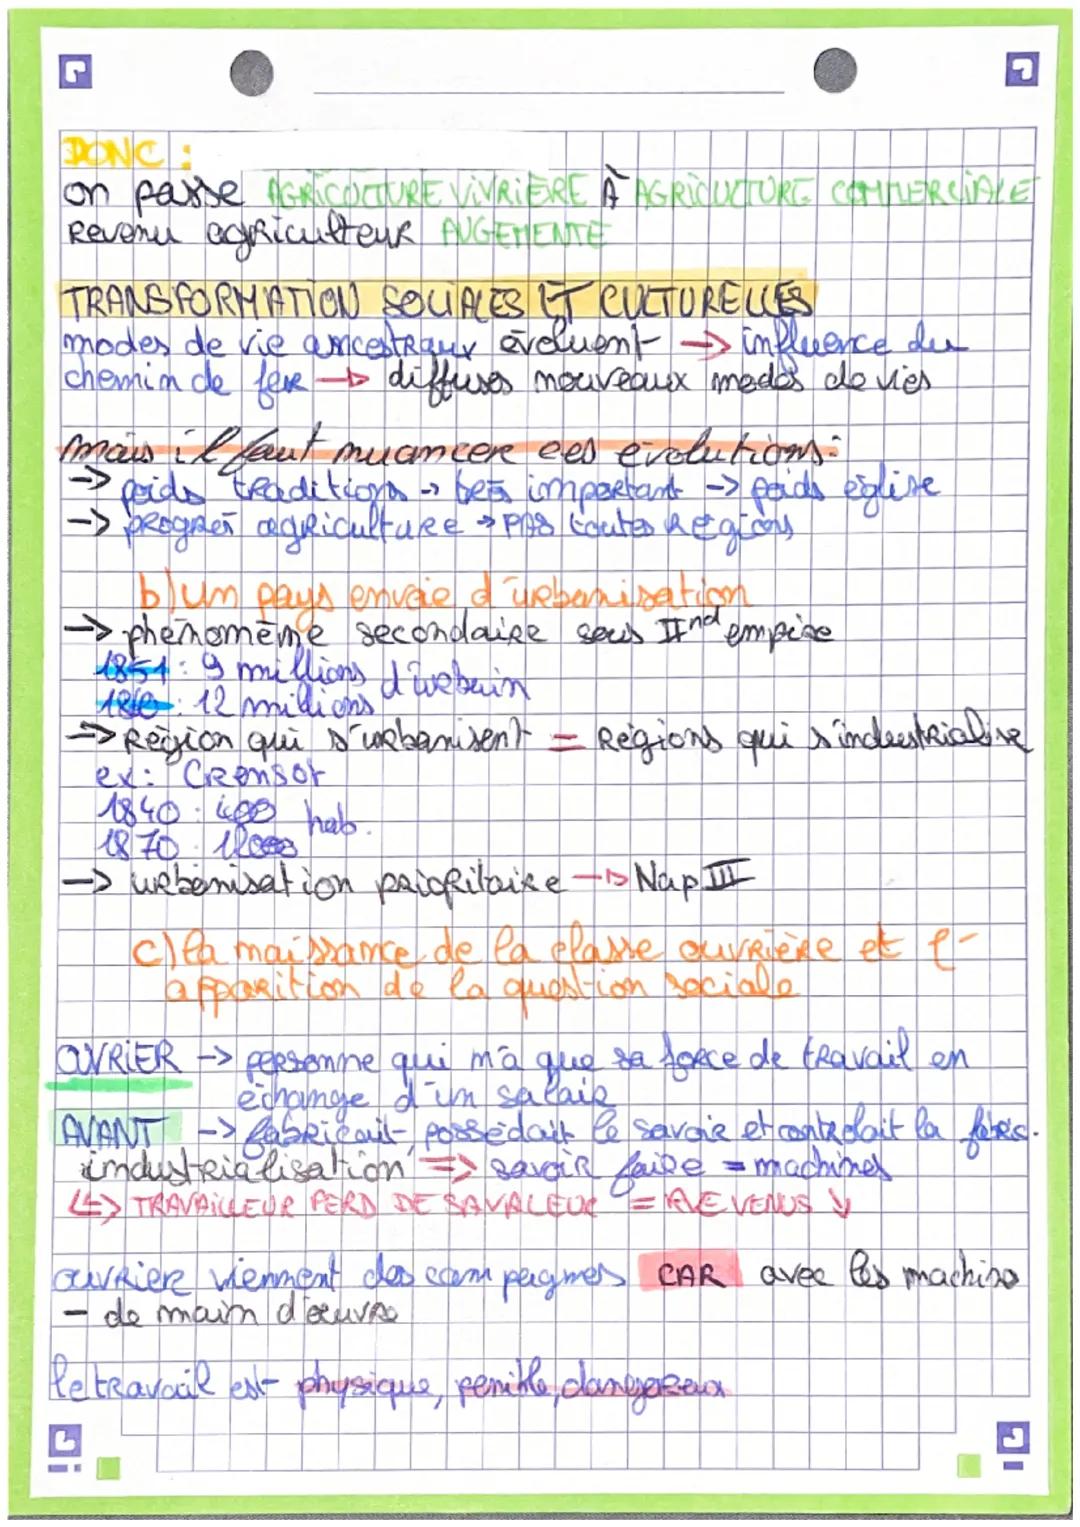 DONC :
on passe AGRICULTURE VIVRIÈRE À AGRICULTURE COMMERCIALE
Revenu agriculteur AUGEMENTE
TRANSFORMATION SOCIALES ET CULTURELLES
modes de vie ancestraux évoluent → influence du
chemin de fer → diffuses nouveaux modes de vies
mais il faut nuancer ces évolutions:
→ poids traditions → très important → poids église
→ progrès agriculture → PAS toutes Régions
b) un pays en voie d'urbanisation
→ phénomène secondaire sous IInd empire
1851 : 9 millions d'urbain
12 millions
→ Région qui s'urbanisent = Régions qui s'industrialise
ex: Creusot
1840 : 400 hab.
1870 :
→ urbanisation prioritaire → Nap III
c) la naissance de la classe ouvrière et l'-
apparition de la question sociale
OUVRIER → personne qui m'a que sa force de travail en
échange d'un salair
AVANT → fabricait, possédait le savoir et controlait la fabric.
industrialisation => savoir faire = machines
↳ TRAVAILLEUR PERD DE SA VALEUR = REVENUS ↓
ouvrier viennent des campagnes CAR avec les machine
- de main d'œuvre
le travail est physique, penible, dangereux